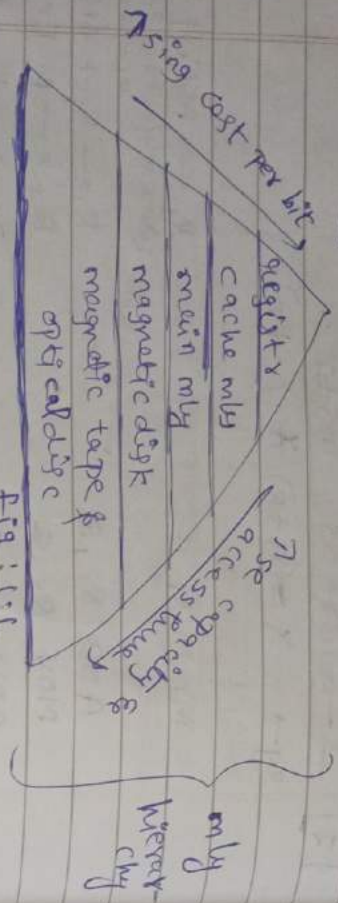 ↑sing cost per bit
registr
cache mly
main mly
magnetic disk
magnetic tape &
optical disc
↑se capacity &
access time
mly
hierar-
chy
fig: